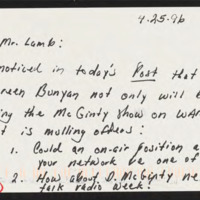 4-25-96
Mr. Lamb:
noticed in today's Post that
reen Bunyan not only will b
ing the McGinty show on WAM
t is mulling others:
1. Could an on-air position a
your network be one of
2. How about D. McGinty ne
talk radio week?